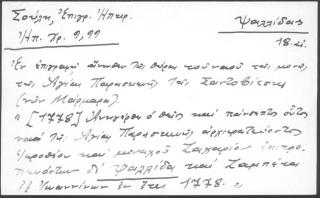 Σούλη, Ἐπιγρ. Ἠπειρ.
Ψαλλίδας
Ἠπ. Χρ. 9, 99
18. αἰ.
Ἐν ἐπιγραφῇ ἄνωθεν τῆς θύρας τοῦ ναοῦ τῆς μονῆς
τῆς Ἁγίας Παρασκευῆς τῆς
(νῦν Μάρμαρα).
" [1778] Ἀνηγέρθη ὁ θεῖος καὶ πάνσεπτος οὗτος
ναὸς τῆς Ἁγίας Παρασκευῆς ἀρχιερατεύοντος
καὶ μοναχοῦ Ζαχαρίου ἐπιτρο-
δὲ Ψαλλίδα καὶ
ἐξ Ἰωαννίνων ἐν ἔτει 1778. "